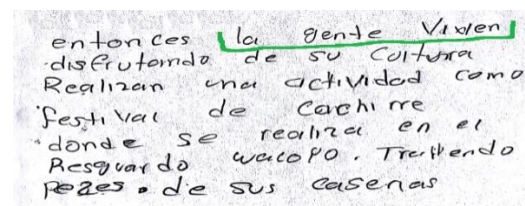 entonces la gente Vixien
disfrutando de su Cultura
Realizan una actividad como
festival de Cachirre
donde se realiza en el
Resguardo wacoyo. Trayendo
pezes. de sus caseñas